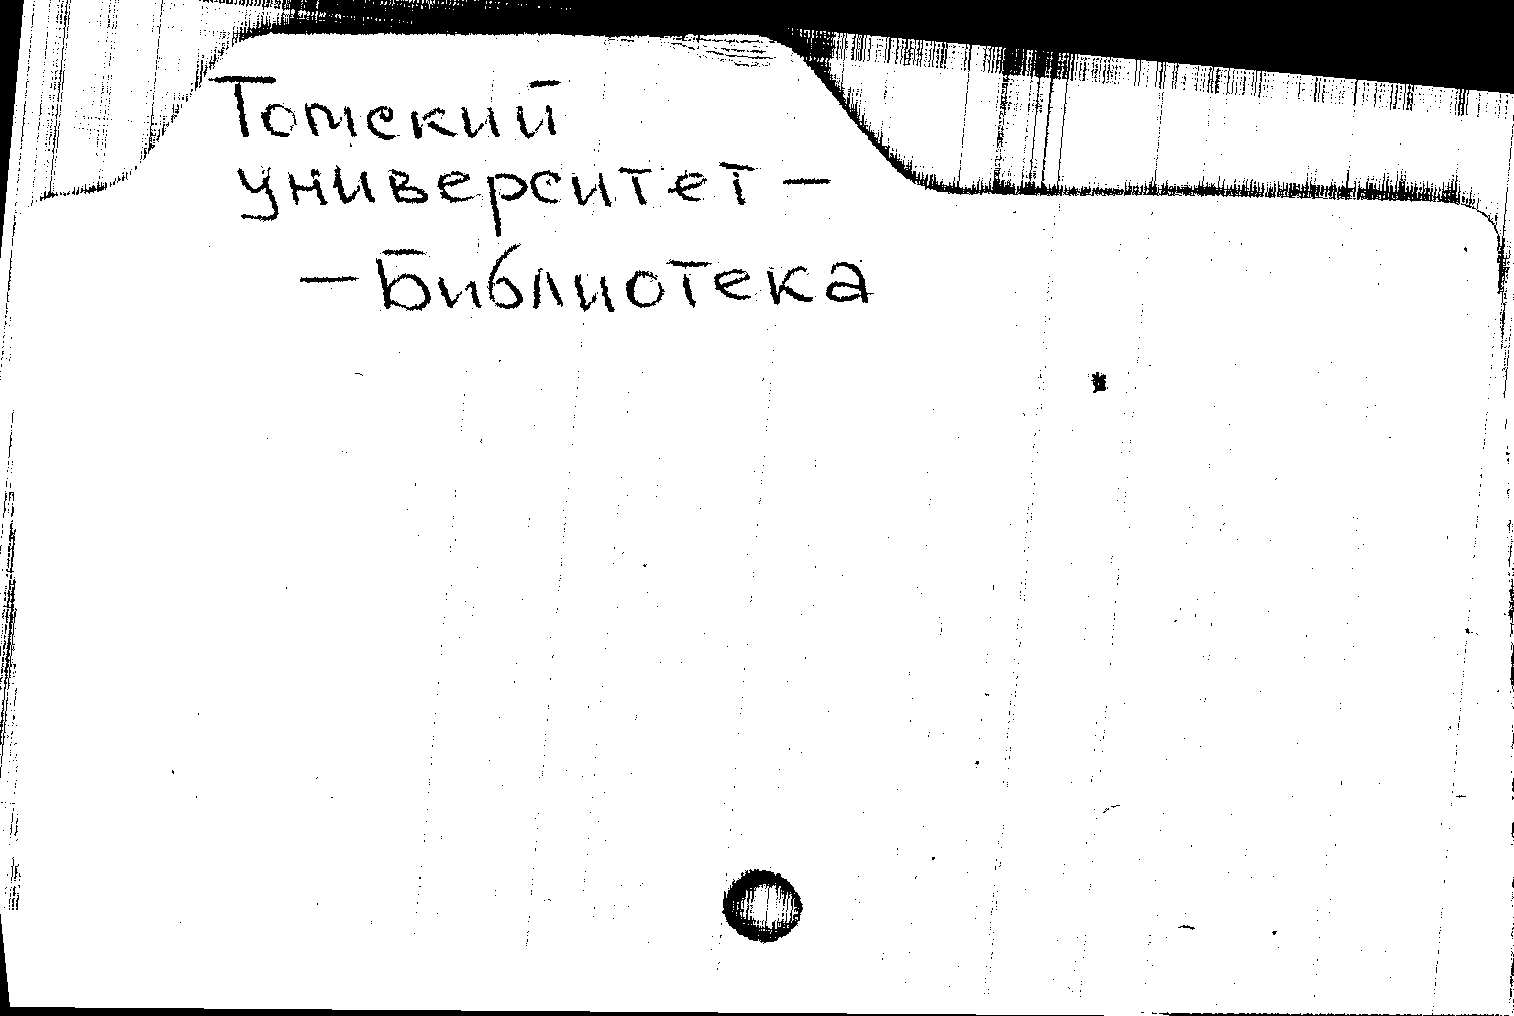 Томский
университет –
– Библиотека